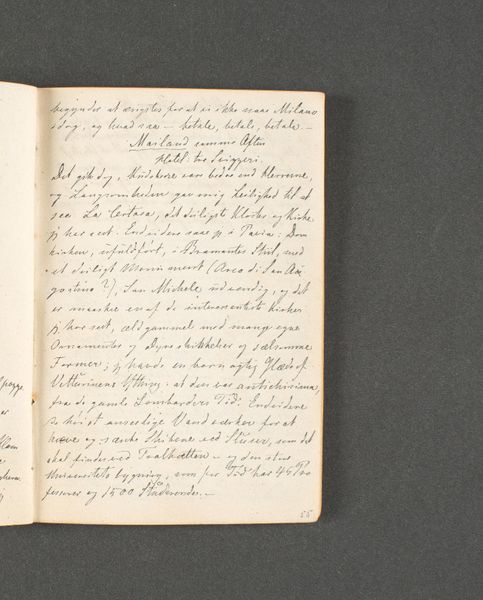 begynder at ængstes for at vi ikke naae Milano
idag, og hvad saa — betale, betale, betale. —
Mailand samme Aften
Hotel tre Svizzeri.
Det gik dog, Kudskene vare bedre end Herrerne,
og Langsomheden gav mig Leilighed til at
see La Certosa, det deiligste Kloster og Kirke
jeg har seet. Endvidere saae jeg i Pavia: Dom
kirken, ufuldført, i Bramantes Stiil, med
et deiligt Monument (Arco di San Au-
gostino?), San Michele udvendig, og det
er maaskee en af de interessanteste Kirker
jeg har seet, ældgammel med mange egne
Ornamenter og Dyreskikkelser og sælsomme
Former; jeg havde en barnagtig Glæde af
Vetturinens Yttring: at den var antichissima,
fra de gamle Lombarders Tid. Endvidere
de høist anseelige Vandværker for at
hæve og sænke Skibene ved Sluser, som det
skal findes ved Trolhätten — og den store
Universitets bygning, som for Tid har 45 Pro
fessorer og 1500 Studerende. —
55